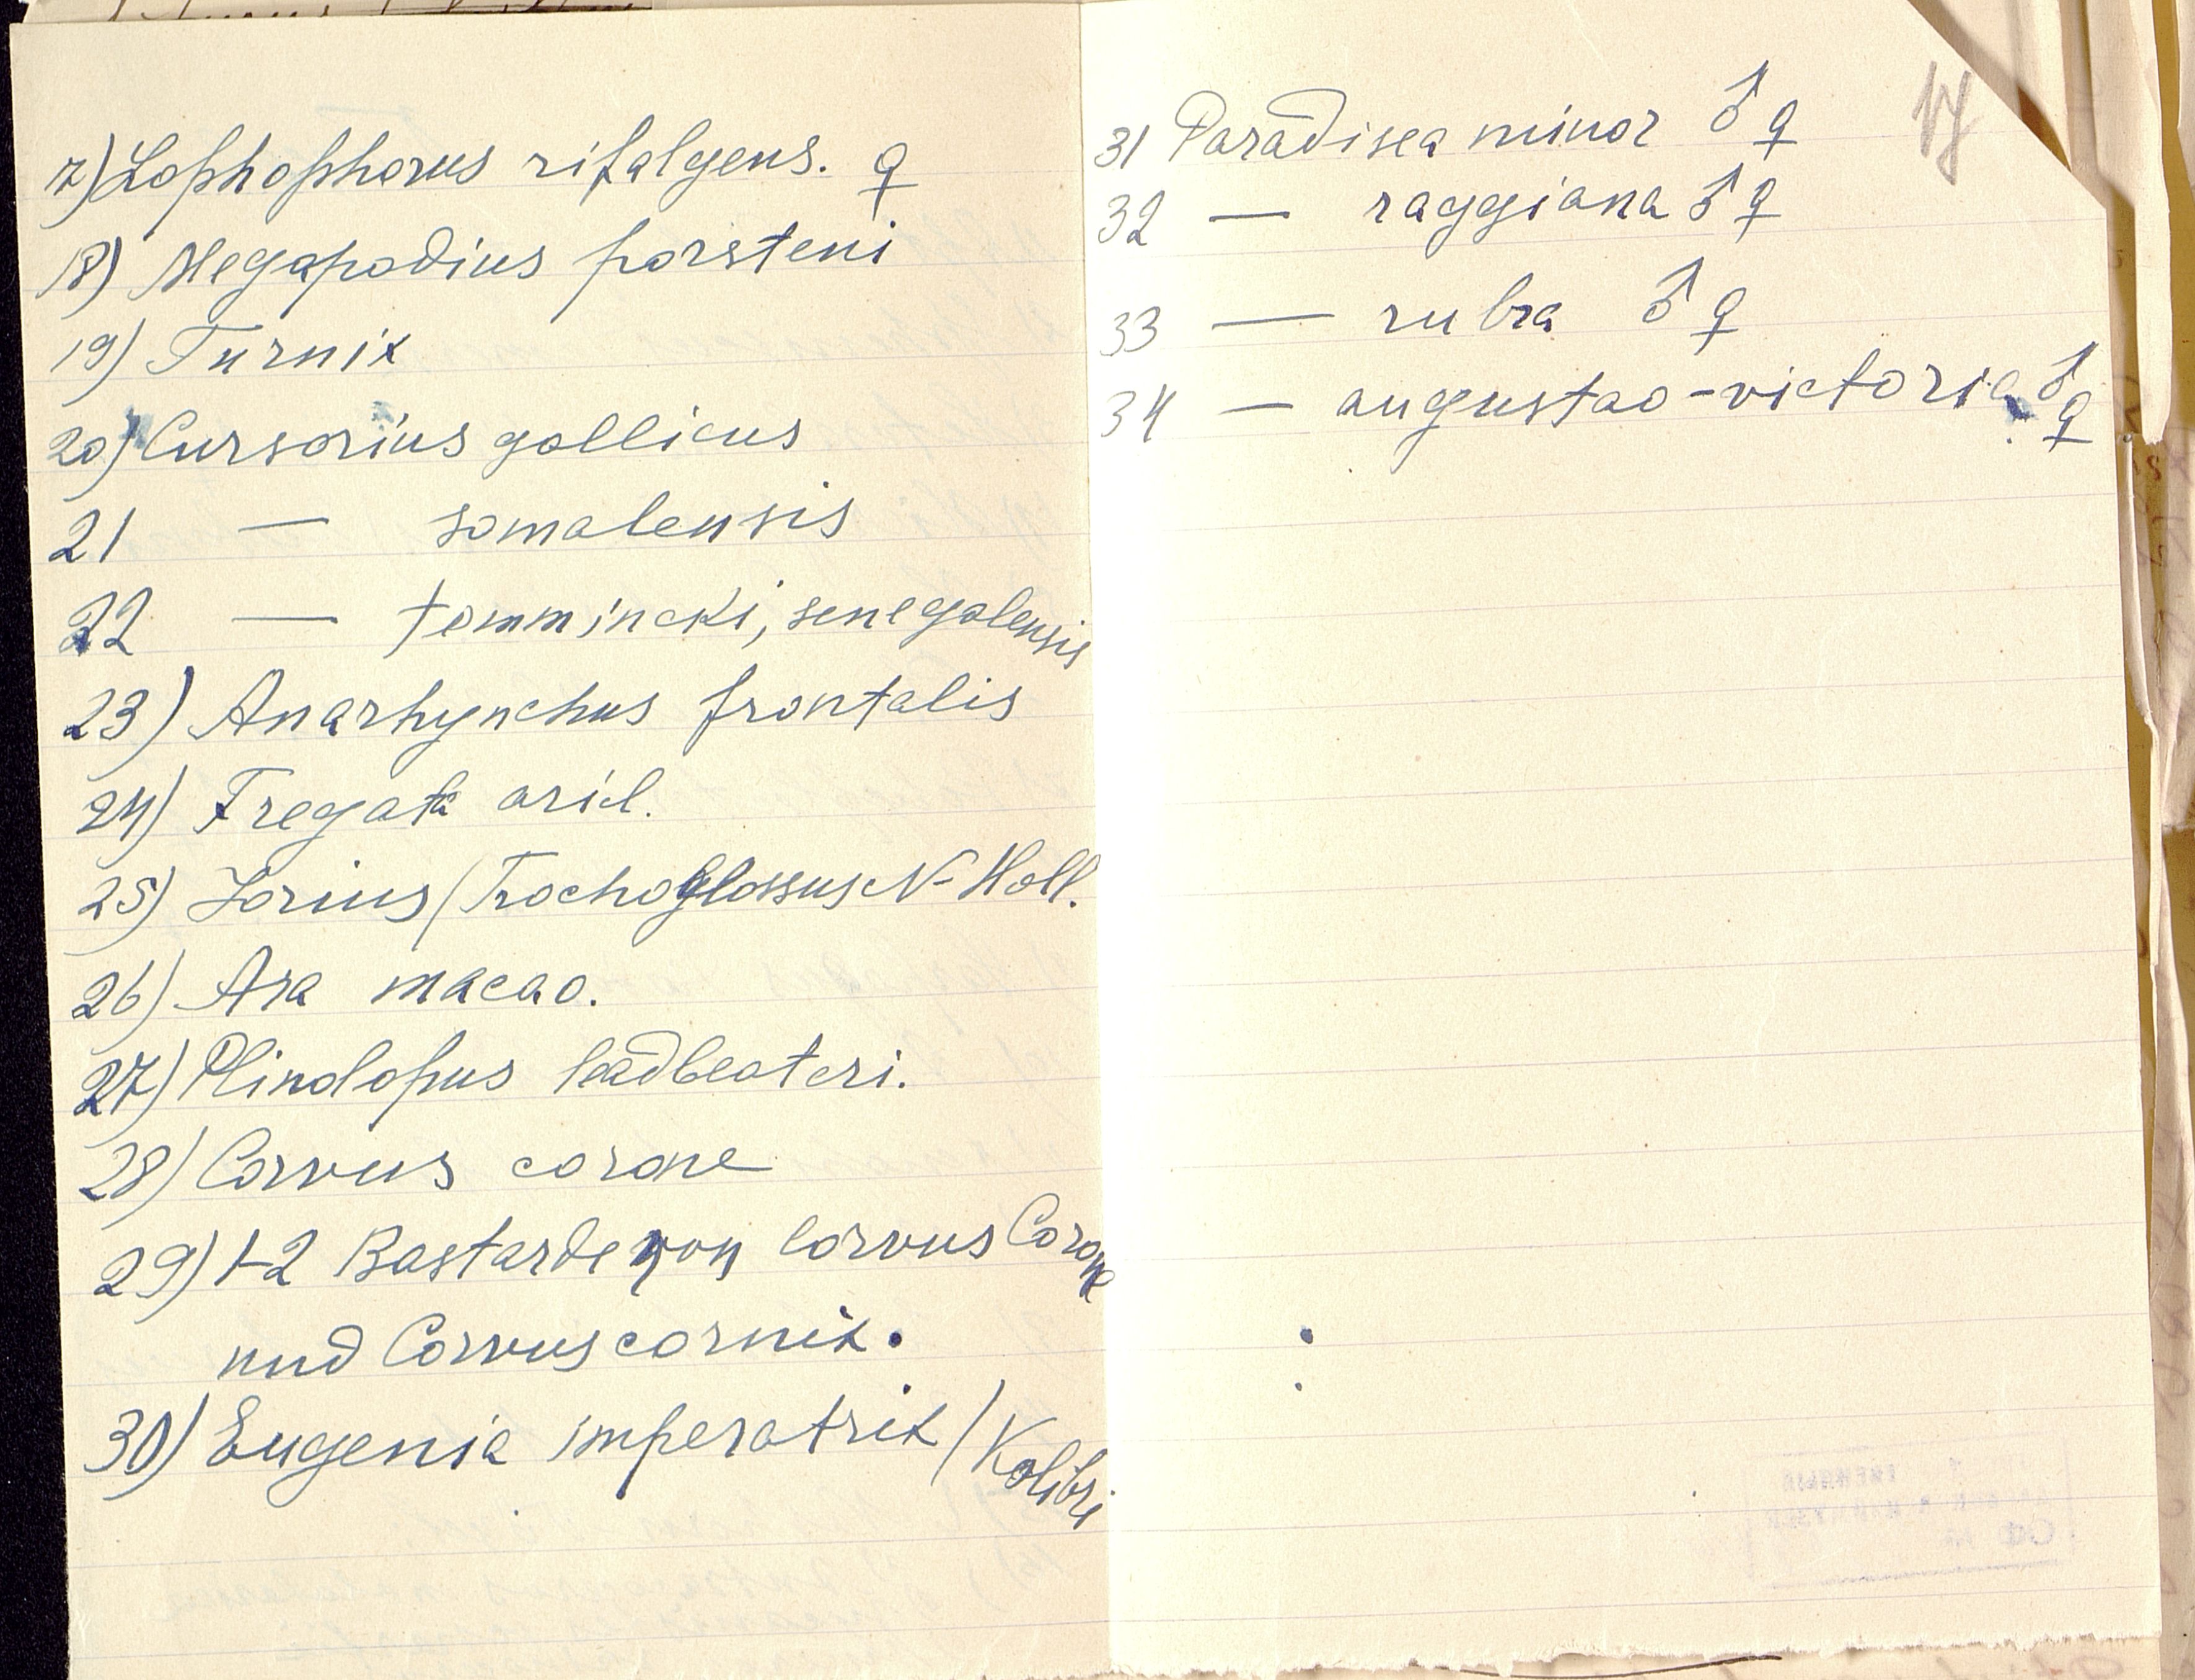 17) Lophophorus rifalgens. ♀
18) Megapodius forsteni
19) Turnix
20) Cursorius gallicus
21 — somalensis
22 — temmincki, senegalensis
23) Anarhynchus frontalis
24) Fregata ariel.
25) Lorius (Trochoglossus N-Holl.
26) Ara macao.
27) Plindopus leadbeateri.
28) Corvus corone
29) 1-2 Bastarde von Corvus Corone
und Corvus cornix.
30) Eugenia imperatrix (Kolibri
17
31 Paradisea minor ♂ ♀
32 — raggiana ♂ ♀
33 — rubra ♂ ♀
34 — augustao-victoria ♂ ♀